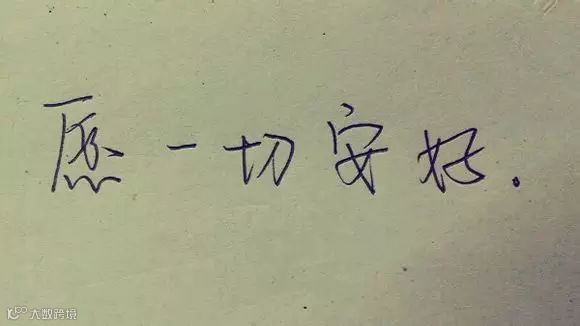 愿一切安好.
大数跨境